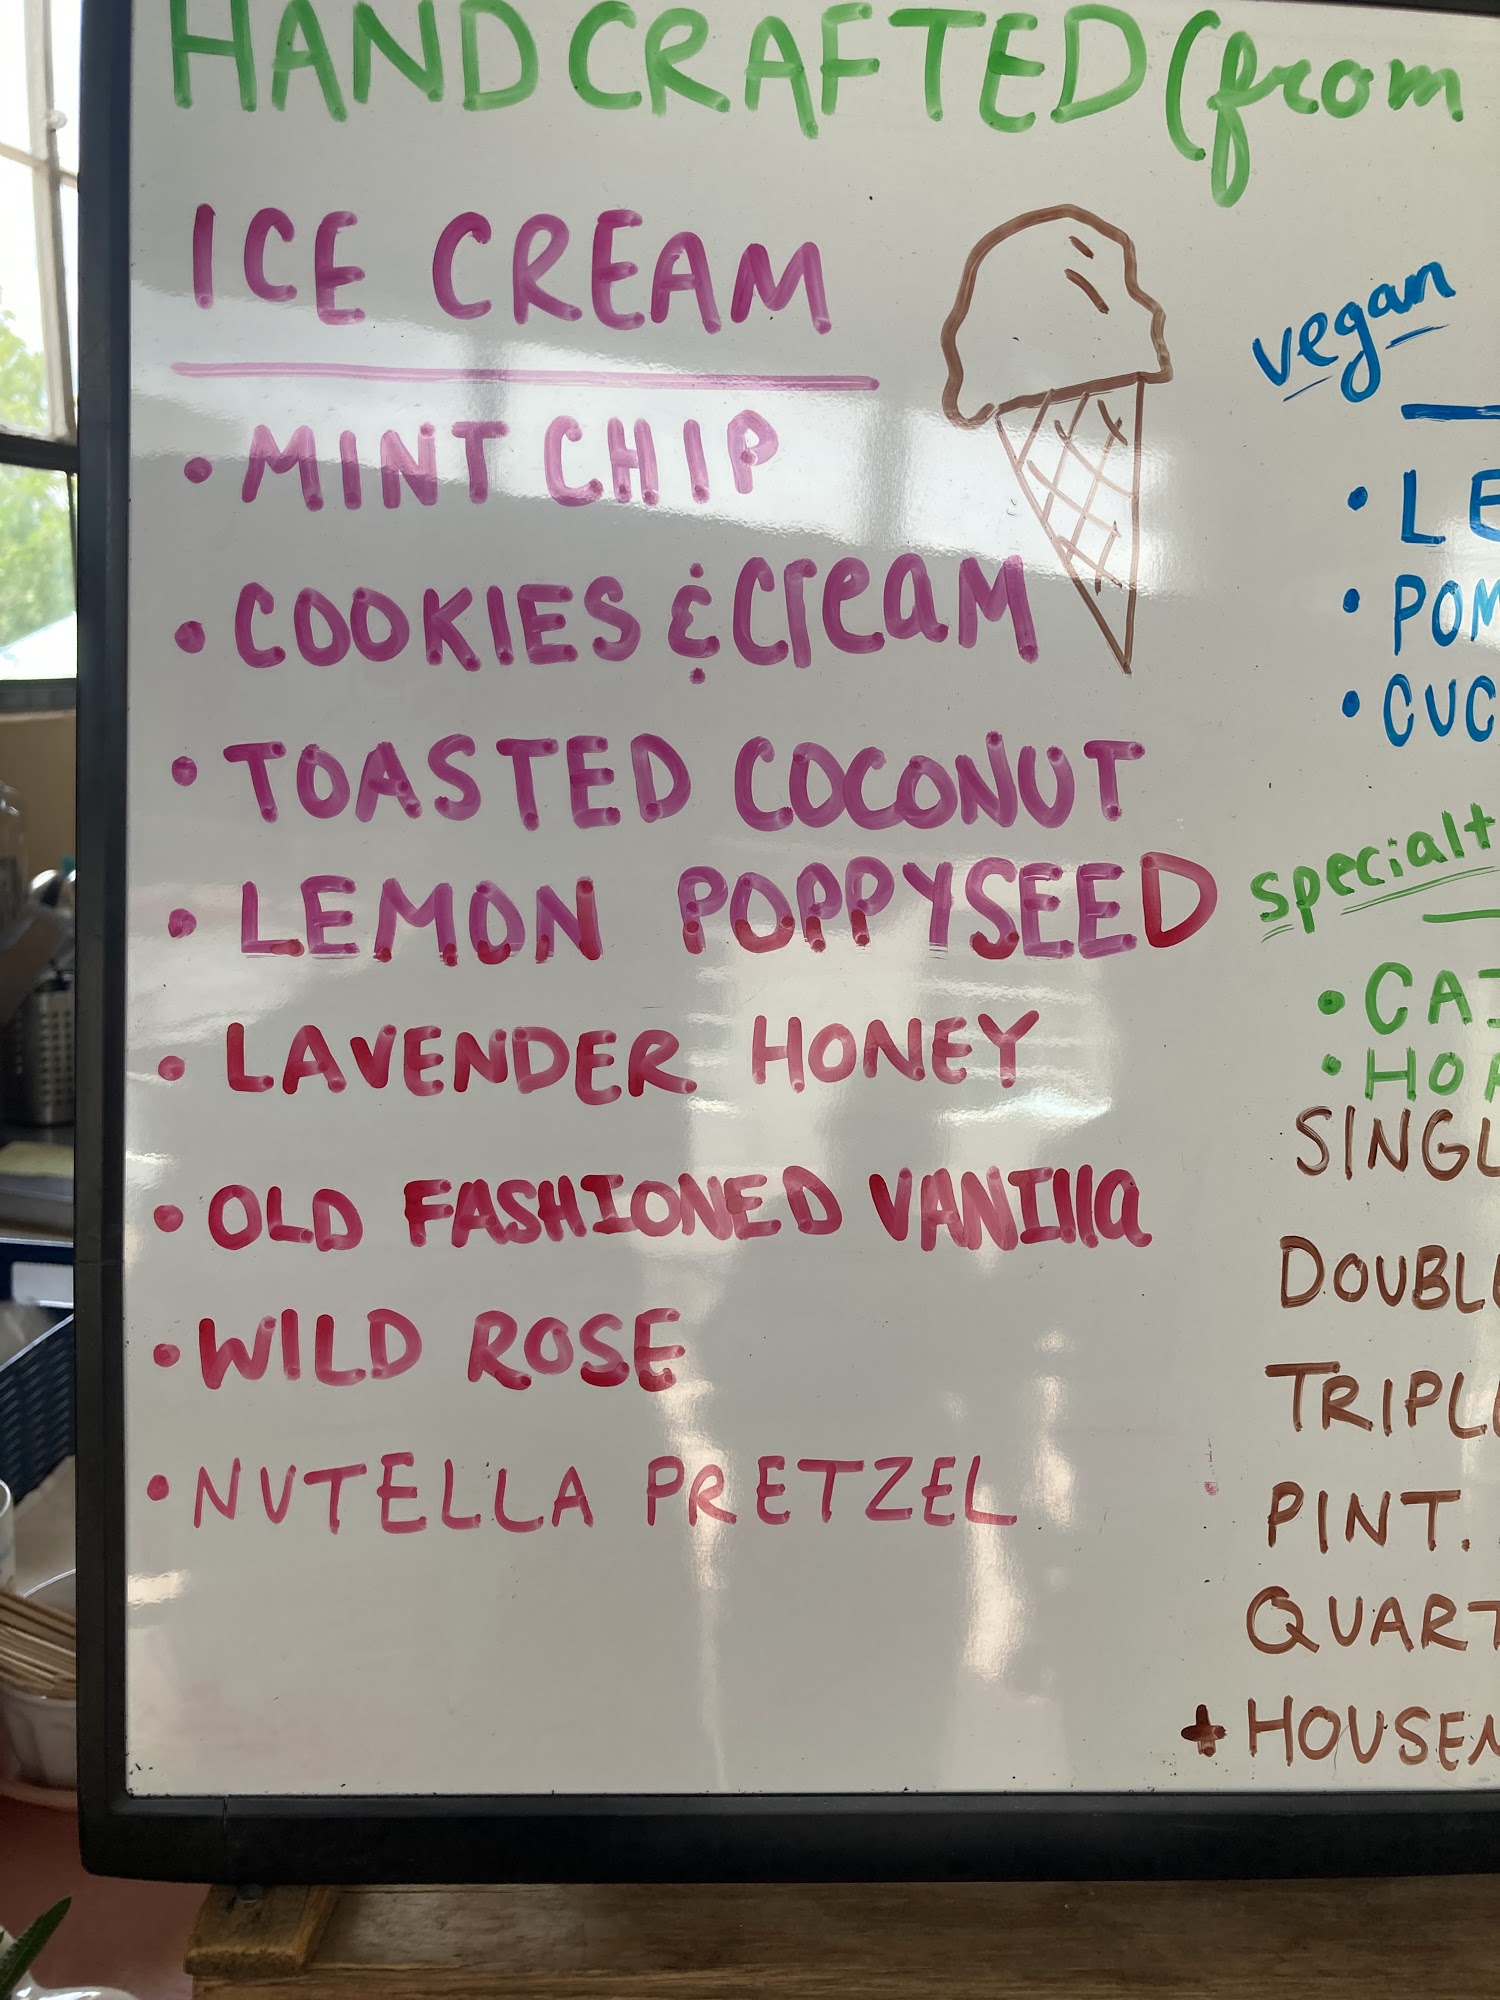 HANDCRAFTED (from
ICE CREAM
• MINT CHIP
• COOKIES & CREAM
• TOASTED COCONUT
• LEMON POPPYSEED
• LAVENDER HONEY
• OLD FASHIONED VANILLA
• WILD ROSE
• NUTELLA PRETZEL
vegan
• LE
• POM
• CUC
specialt
• CAI
• HOR
SINGL
DOUBLE
TRIPLE
PINT.
QUART
+ HOUSEM